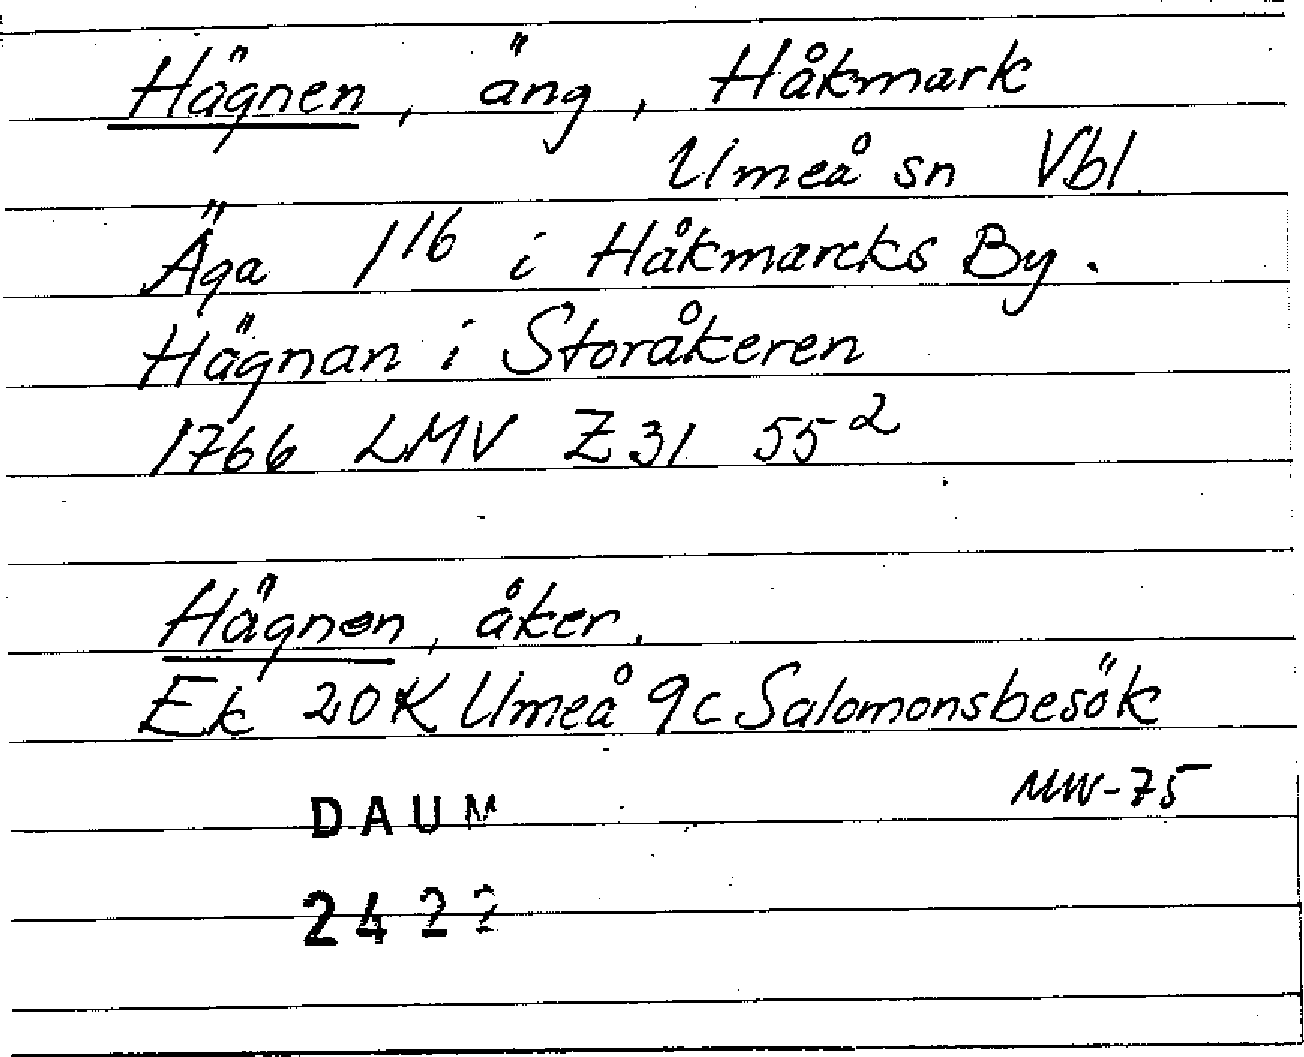 Hägnen, äng, Håkmark
Umeå sn Vbl
Äga 1¹⁶ i Håkmarcks By.
Hägnan i Storåkeren
1766 LMV Z 31 55²
Hägnen, åker.
Ek 20K Umeå 9c Salomonsbesök
MW-75
DAUM
2422